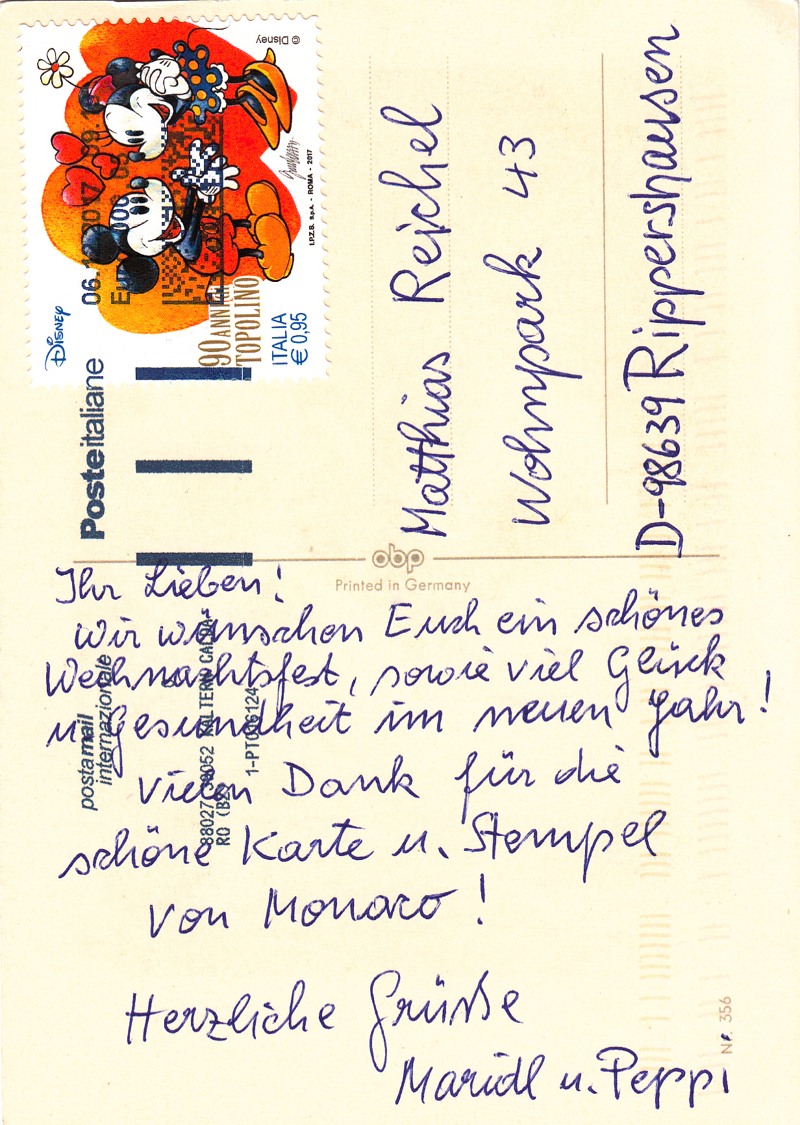 © Disney
Disney
90 ANNI
TOPOLINO
ITALIA
€ 0,95
I.P.Z.S. S.p.A. - ROMA - 2017
06.12.2017
Eur
Posteitaliane
postamail
internazionale
1-PT006124
Matthias Reichel
Wohnpark 43
D-98639 Rippershausen
obp
Printed in Germany
Ihr Lieben!
Wir wünschen Euch ein schönes
Weihnachtsfest, sowie viel Glück
u. Gesundheit im neuen Jahr!
Vielen Dank für die
schöne Karte u. Stempel
von Monaco!
Herzliche Grüße
Maridl u. Peppi
Nr. 356